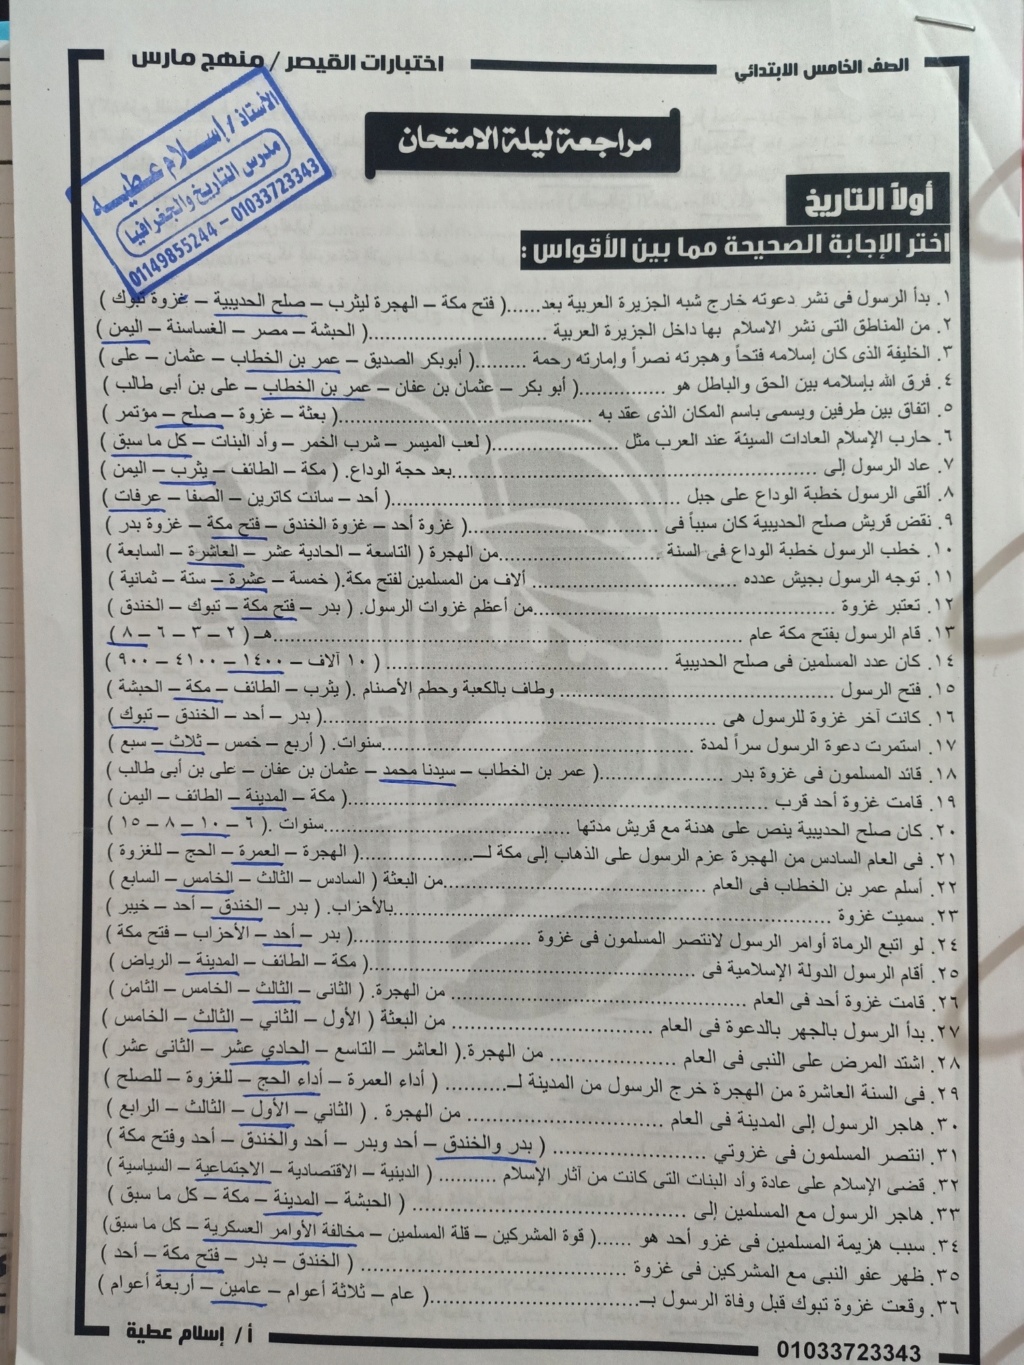 الصف الخامس الابتدائي
اختبارات القيصر / منهج مارس
الأستاذ / إسلام عطيه
مدرس التاريخ والجغرافيا
01149855244 - 01033723343
مراجعة ليلة الامتحان
أولاً التاريخ
اختر الإجابة الصحيحة مما بين الأقواس :
١. بدأ الرسول فى نشر دعوته خارج شبه الجزيرة العربية بعد......( فتح مكة – الهجرة ليثرب – صلح الحديبية – غزوة تبوك )
٢. من المناطق التى نشر الاسلام بها داخل الجزيرة العربية ..............................( الحبشة – مصر – الغساسنة – اليمن )
٣. الخليفة الذى كان إسلامه فتحاً وهجرته نصراً وإمارته رحمة .........( أبوبكر الصديق – عمر بن الخطاب – عثمان – على )
٤. فرق الله بإسلامه بين الحق والباطل هو ...............( أبو بكر – عثمان بن عفان – عمر بن الخطاب – على بن أبى طالب )
٥. اتفاق بين طرفين ويسمى باسم المكان الذى عقد به ....................................( بعثة – غزوة – صلح – مؤتمر )
٦. حارب الإسلام العادات السيئة عند العرب مثل ..................( لعب الميسر – شرب الخمر – وأد البنات – كل ما سبق )
٧. عاد الرسول إلى ...................................................بعد حجة الوداع. ( مكة – الطائف – يثرب – اليمن )
٨. ألقى الرسول خطبة الوداع على جبل ........................................( أحد – سانت كاترين – الصفا – عرفات )
٩. نقض قريش صلح الحديبية كان سبباً فى ..............................( غزوة أحد – غزوة الخندق – فتح مكة – غزوة بدر )
١٠. خطب الرسول خطبة الوداع فى السنة ......................من الهجرة ( التاسعة – الحادية عشر – العاشرة – السابعة )
١١. توجه الرسول بجيش عدده ............................ ألاف من المسلمين لفتح مكة.( خمسة – عشرة – ستة – ثمانية )
١٢. تعتبر غزوة ..........................................من أعظم غزوات الرسول. ( بدر – فتح مكة – تبوك – الخندق )
١٣. قام الرسول بفتح مكة عام ...............................................................هـ ( ٢ – ٣ – ٦ – ٨ )
١٤. كان عدد المسلمين فى صلح الحديبية .......................................... ( ١٠ آلاف – ١٤٠٠ – ٤١٠٠ – ٩٠٠ )
١٥. فتح الرسول ...................................... وطاف بالكعبة وحطم الأصنام .( يثرب – الطائف – مكة – الحبشة )
١٦. كانت آخر غزوة للرسول هى .......................................................( بدر – أحد – الخندق – تبوك )
١٧. استمرت دعوة الرسول سراً لمدة ...........................................سنوات. ( أربع – خمس – ثلاث – سبع )
١٨. قائد المسلمون فى غزوة بدر ................( عمر بن الخطاب – سيدنا محمد – عثمان بن عفان – على بن أبى طالب )
١٩. قامت غزوة أحد قرب .........................................................( مكة – المدينة – الطائف – اليمن )
٢٠. كان صلح الحديبية ينص على هدنة مع قريش مدتها .................................سنوات .( ٦ – ١٠ – ٨ – ١٥ )
٢١. فى العام السادس من الهجرة عزم الرسول على الذهاب إلى مكة لــ...............( الهجرة – العمرة – الحج – للغزوة )
٢٢. أسلم عمر بن الخطاب فى العام ...................................من البعثة ( السادس – الثالث – الخامس – السابع )
٢٣. سميت غزوة ...........................................................بالأحزاب. ( بدر – الخندق – أحد – خيبر )
٢٤. لو اتبع الرماة أوامر الرسول لانتصر المسلمون فى غزوة .......................( بدر – أحد – الأحزاب – فتح مكة )
٢٥. أقام الرسول الدولة الإسلامية فى ...........................................( مكة – الطائف – المدينة – الرياض )
٢٦. قامت غزوة أحد فى العام ...................................... من الهجرة. ( الثانى – الثالث – الخامس – الثامن )
٢٧. بدأ الرسول بالجهر بالدعوة فى العام .......................... من البعثة ( الأول – الثاني – الثالث – الخامس )
٢٨. اشتد المرض على النبى فى العام ................ من الهجرة.( العاشر – التاسع – الحادي عشر – الثانى عشر )
٢٩. فى السنة العاشرة من الهجرة خرج الرسول من المدينة لــ.......... ( أداء العمرة – أداء الحج – للغزوة – للصلح )
٣٠. هاجر الرسول إلى المدينة فى العام .......................... من الهجرة . ( الثاني – الأول – الثالث – الرابع )
٣١. انتصر المسلمون فى غزوتي .................... ( بدر والخندق – أحد وبدر – أحد والخندق – أحد وفتح مكة )
٣٢. قضى الإسلام على عادة وأد البنات التى كانت من آثار الإسلام .......... ( الدينية – الاقتصادية – الاجتماعية – السياسية )
٣٣. هاجر الرسول مع المسلمين إلى .................................... ( الحبشة – المدينة – مكة – كل ما سبق )
٣٤. سبب هزيمة المسلمين فى غزو أحد هو ......( قوة المشركين – قلة المسلمين – مخالفة الأوامر العسكرية – كل ما سبق)
٣٥. ظهر عفو النبى مع المشركين فى غزوة .................................... ( الخندق – بدر – فتح مكة – أحد )
٣٦. وقعت غزوة تبوك قبل وفاة الرسول بــ..........................( عام – ثلاثة أعوام – عامين – أربعة أعوام )
01033723343
أ / إسلام عطية